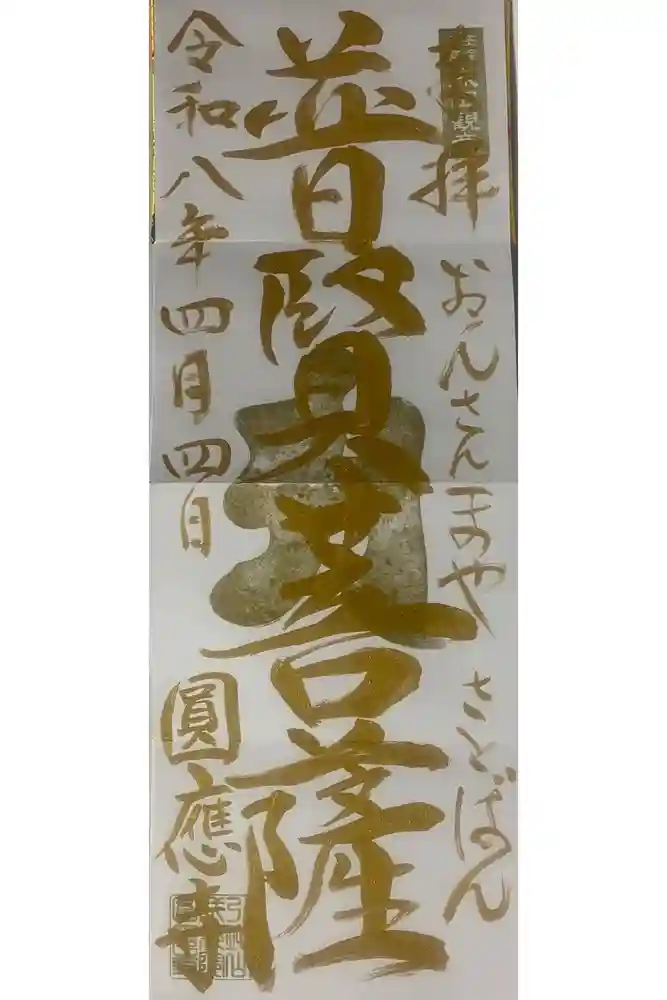 奉拝
おんさんまのや
さとばん
普賢菩薩
令和八年四月四日
圓應寺